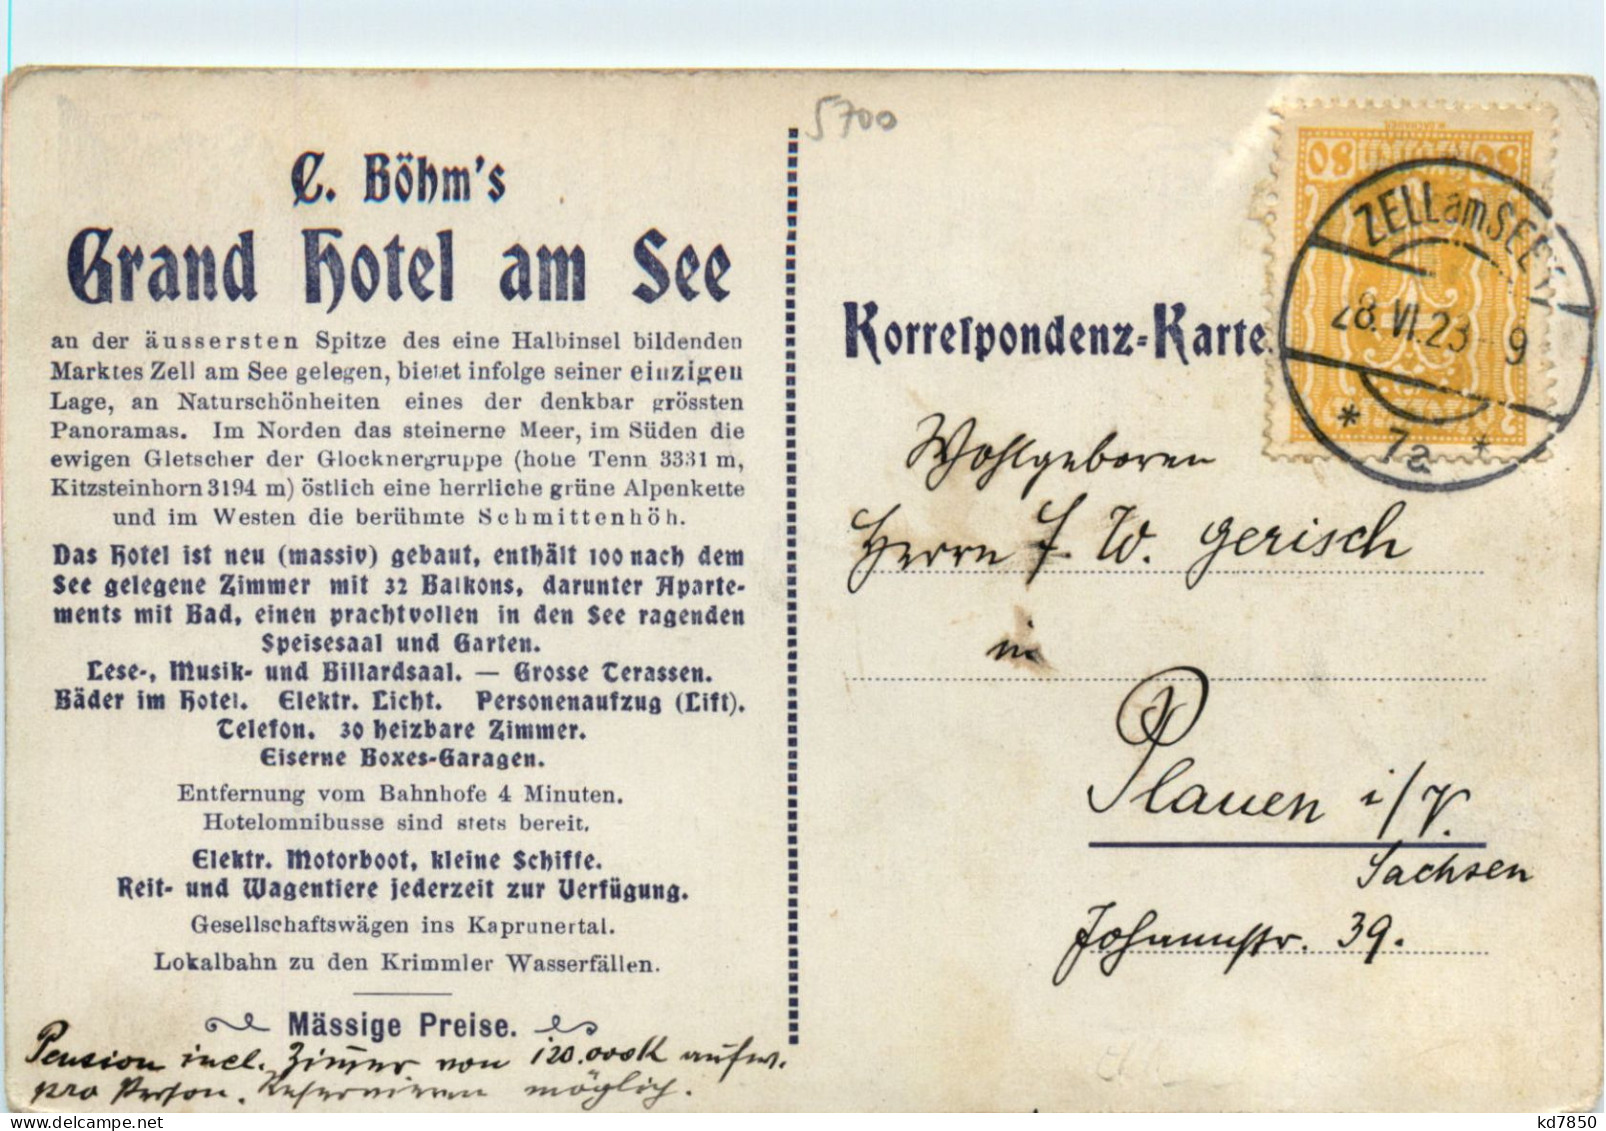 5700
C. Böhm's
Grand Hotel am See
an der äussersten Spitze des eine Halbinsel bildenden
Marktes Zell am See gelegen, bietet infolge seiner einzigen
Lage, an Naturschönheiten eines der denkbar grössten
Panoramas. Im Norden das steinerne Meer, im Süden die
ewigen Gletscher der Glocknergruppe (hohe Tenn 3331 m,
Kitzsteinhorn 3194 m) östlich eine herrliche grüne Alpenkette
und im Westen die berühmte Schmittenhöh.
Das Hotel ist neu (massiv) gebaut, enthält 100 nach dem
See gelegene Zimmer mit 32 Balkons, darunter Aparte-
ments mit Bad, einen prachtvollen in den See ragenden
Speisesaal und Garten.
Lese-, Musik- und Billardsaal. — Grosse Terassen.
Bäder im Hotel. Elektr. Licht. Personenaufzug (Lift).
Telefon. 30 heizbare Zimmer.
Eiserne Boxes-Garagen.
Entfernung vom Bahnhofe 4 Minuten.
Hotelomnibusse sind stets bereit.
Elektr. Motorboot, kleine Schiffe.
Reit- und Wagentiere jederzeit zur Verfügung.
Gesellschaftswägen ins Kaprunertal.
Lokalbahn zu den Krimmler Wasserfällen.
Mässige Preise.
Pension incl. Zimmer von 120.000K aufw.
pro Person. Reservieren möglich.
Korrespondenz-Karte.
80 80
ZELL am SEE
28. VI. 23 - 9
* 7a *
Wohlgeboren
Herrn F. W. Gerisch
in
Plauen i/V.
Sachsen
Johannstr. 39.
kd7850